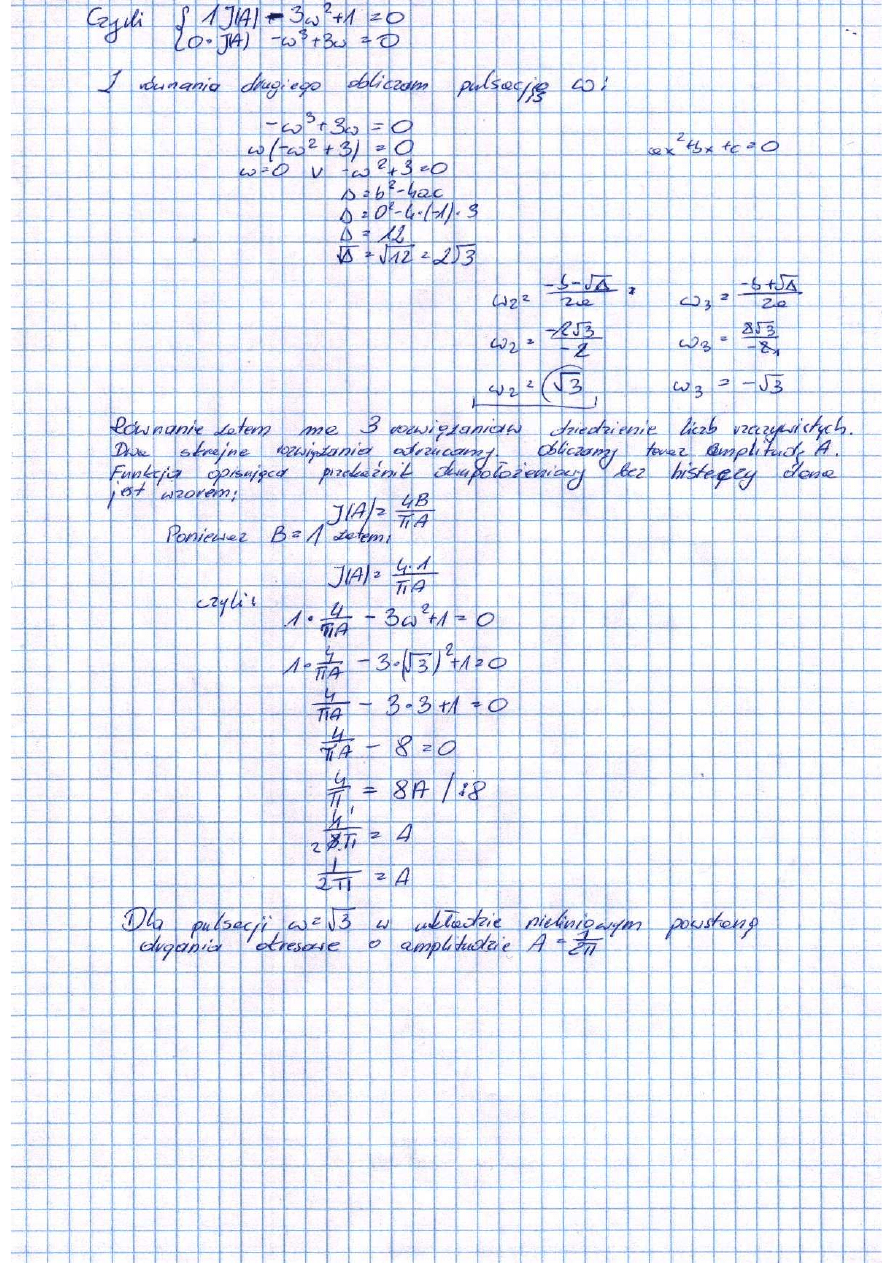 Czyli { 1 J(A) - 3ω²+1 = 0
{ 0·J(A) -ω³+3ω = 0
Z równania drugiego obliczam pulsację ω:
-ω³+3ω = 0
ω(-ω²+3) = 0
ax²+bx+c=0
ω=0 v -ω²+3=0
Δ=b²-4ac
Δ=0²-4·(-1)·3
Δ= 12
√Δ = √12 = 2√3
ω₂= (-b-√Δ)/2a ω₃= (-b+√Δ)/2a
ω₂= (-2√3)/(-2) ω₃= (2√3)/(-2)
ω₂= √3 ω₃ = -√3
Równanie zatem ma 3 rozwiązania w dziedzienie liczb rzeczywistych.
Dwa skrajne rozwiązania odrzucamy. Obliczamy teraz amplitudę A.
Funkcja opisująca przekaźnik dwupołożeniowy bez histerezy dana
jest wzorem:
J(A)= 4B/ΠA
Ponieważ B=1 zatem:
J(A)= 4·1/ΠA
czyli:
1· 4/ΠA - 3ω²+1 = 0
1· 4/ΠA - 3·(√3)²+1=0
4/ΠA - 3·3+1 = 0
4/ΠA - 8 = 0
4/Π = 8A /:8
4/8·Π = A
1/2Π = A
Dla pulsacji ω=√3 w układzie nieliniowym powstaną
drgania okresowe o amplitudzie A = 1/2Π